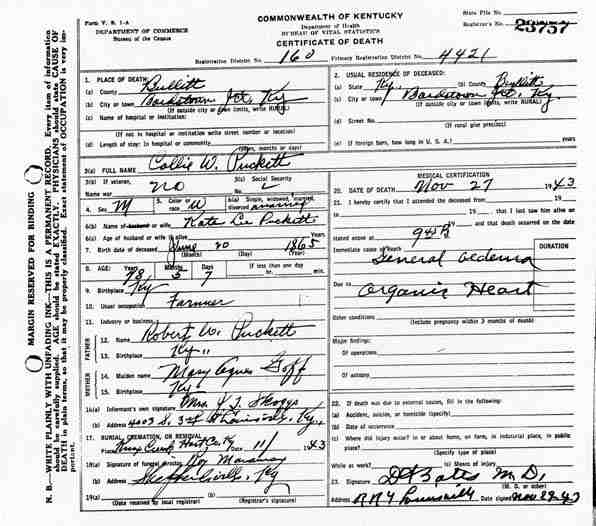 Form V. S. 1-A
DEPARTMENT OF COMMERCE
Bureau of the Census
COMMONWEALTH OF KENTUCKY
Department of Health
BUREAU OF VITAL STATISTICS
CERTIFICATE OF DEATH
State File No.
Registrar's No.
23757
Registration District No. 160 Primary Registration District No. 4421
MARGIN RESERVED FOR BINDING
N. B.—WRITE PLAINLY WITH UNFADING INK—THIS IS A PERMANENT RECORD. Every item of information
should be carefully supplied. AGE should be stated EXACTLY. PHYSICIANS should state CAUSE OF
DEATH in plain terms, so that it may be properly classified. Exact statement of OCCUPATION is very im-
portant.
1. PLACE OF DEATH:
(a) County Bullitt
(b) City or town Bardstown Jct. Ky
(If outside city or town limits, write RURAL)
(c) Name of hospital or institution:
(If not in hospital or institution write street number or location)
(d) Length of stay: In hospital or community
(years, months or days)
2. USUAL RESIDENCE OF DECEASED:
(a) State Ky. (b) County Bullitt
(c) City or town Bardstown Jct. Ky.
(If outside city or town limits, write RURAL)
(d) Street No.
(If rural give precinct)
(e) If foreign born, how long in U. S. A.? years
3(a) FULL NAME Collie W. Puckett
3(b) If veteran,
Name war no
3(c) Social Security
No.
4. Sex M
5. Color or
race W
6(a) Single, widowed, married,
divorced married
6(b) Name of husband or wife Kate Lee Puckett
6(c) Age of husband or wife if alive
7. Birth date of deceased June 20 1865
(Month) (Day) (Year)
8. AGE: Years Months Days If less than one day
78 5 7 hr. min.
9. Birthplace Ky
10. Usual occupation Farmer
11. Industry or business
FATHER
12. Name Robert W. Puckett
13. Birthplace Ky.
MOTHER
14. Maiden name Mary Agnes Goff
15. Birthplace Ky.
16(a) Informant's own signature Mrs. Skaggs
(b) Address 4003 S. 3rd St Louisville, Ky.
17. BURIAL, CREMATION, OR REMOVAL
Place Hart Co. Ky Date 11/ 1943
18(a) Signature of funeral director
(b) Address Shepherdsville, Ky
19(a) (b)
(Date received by local registrar) (Registrar's signature)
MEDICAL CERTIFICATION
20. DATE OF DEATH Nov 27 1943
21. I hereby certify that I attended the deceased from 19
to 19 , that I last saw him alive on
19 , and that death occurred on the date
stated above at
Immediate cause of death General oedema
DURATION
Due to Organic Heart
Other conditions
(Include pregnancy within 3 months of death)
Major findings:
Of operations
Of autopsy
22. If death was due to external causes, fill in the following:
(a) Accident, suicide, or homicide (specify)
(b) Date of occurrence
(c) Where did injury occur? in or about home, on farm, in industrial place, in public
place?
(Specify type of place)
While at work? (e) Means of injury
23. Signature Batts M.D.
(M. D. or other)
Address Date signed Nov 29-43